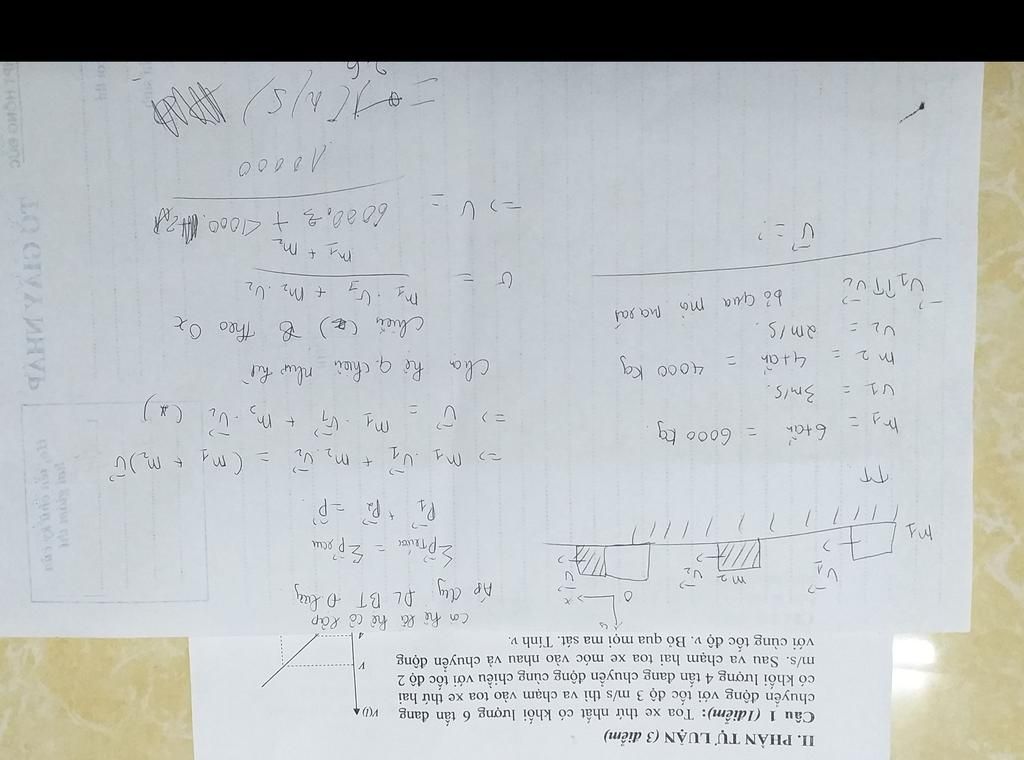 II. PHẦN TỰ LUẬN (3 điểm)
Câu 1 (1điểm): Toa xe thứ nhất có khối lượng 6 tấn đang
chuyển động với tốc độ 3 m/s thì va chạm vào toa xe thứ hai
có khối lượng 4 tấn đang chuyển động cùng chiều với tốc độ 2
m/s. Sau va chạm hai toa xe móc vào nhau và chuyển động
với cùng tốc độ v. Bỏ qua mọi ma sát. Tính v.
V(l)
V
O x
v1
m2 v2
v
m1
TT
m1 = 6 tấn = 6000 kg.
v1 = 3m/s.
m2 = 4 tấn = 4000 kg
v2 = 2m/s.
v1 ↑↑ v2 bỏ qua mọi ma sát
v = ?
coi hệ là hệ cô lập
Áp dụng ĐL BT Đ lượng
Σp trước = Σp sau
p1 + p2 = p
=> m1 . v1 + m2 . v2 = (m1 + m2)v
=> v = m1 . v1 + m2 . v2 (*)
Chọn hệ q chiếu như hv
Chiếu (*) theo Ox
v = m1 . v1 + m2 . v2
m1 + m2
=> v = 6000.3 + 4000.2
10000
= 2,6 (m/s)
TỜ GIẤY NHÁP